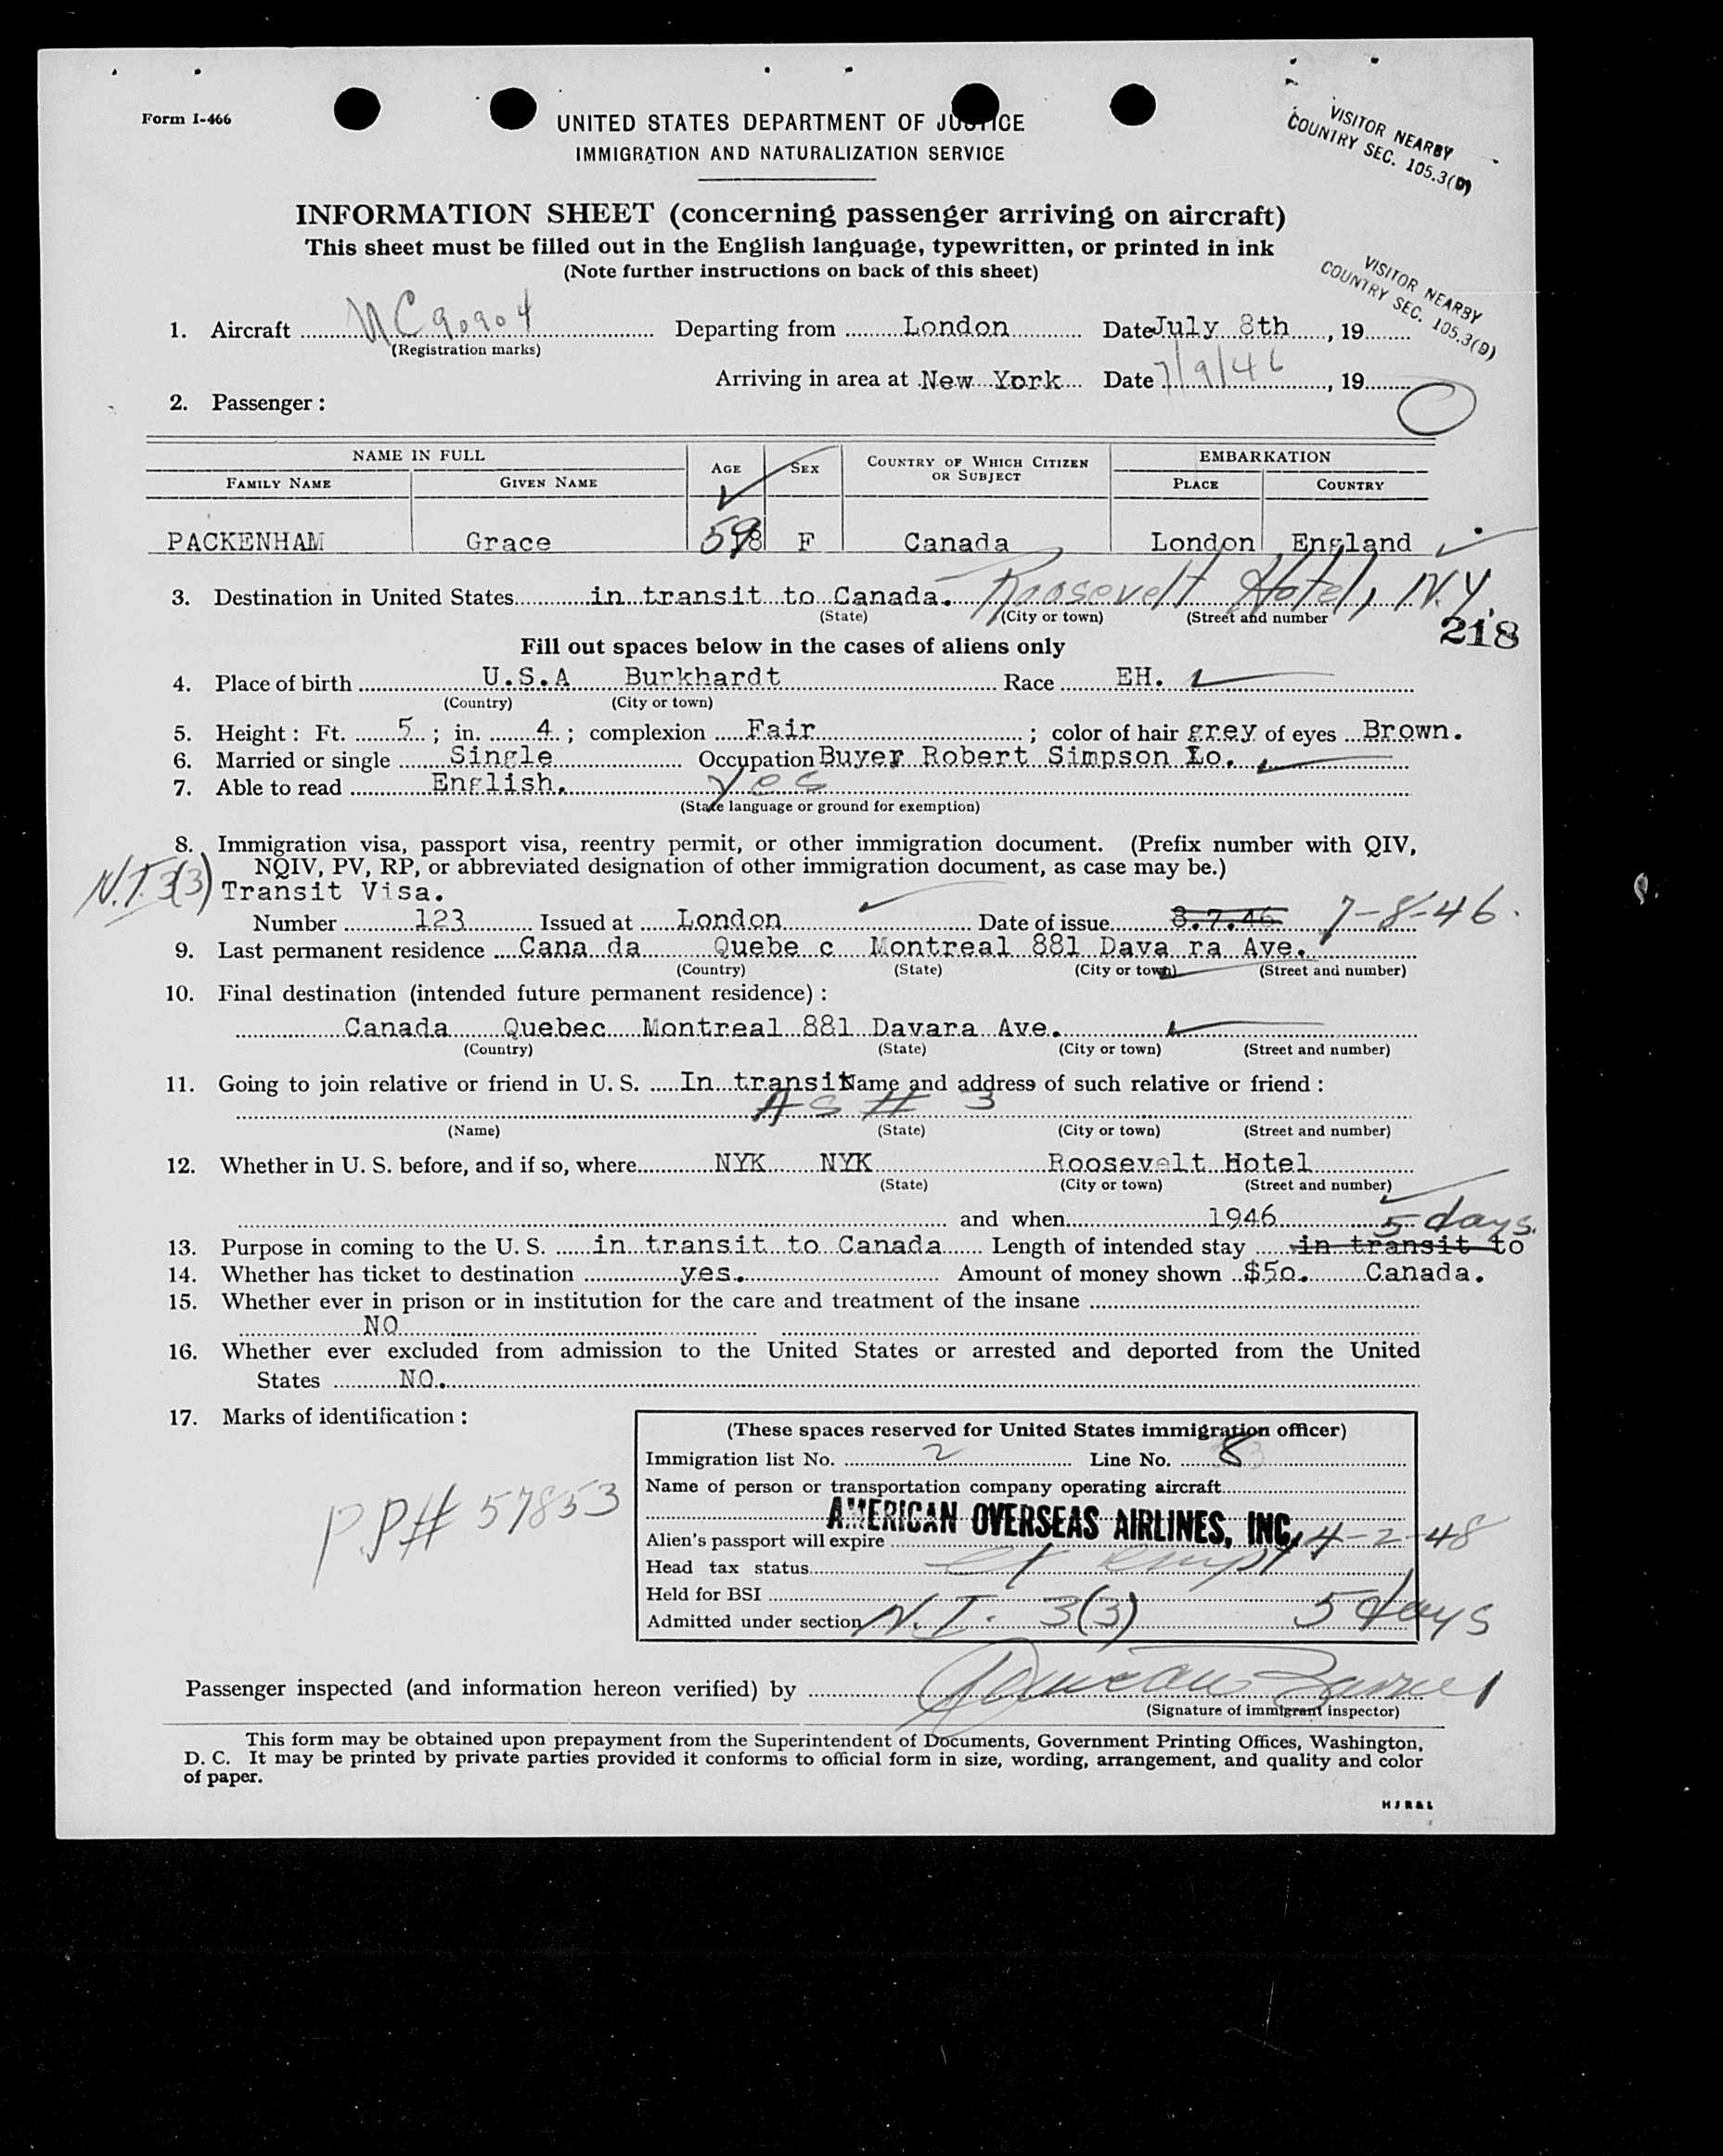 Form I-466
UNITED STATES DEPARTMENT OF JUSTICE
IMMIGRATION AND NATURALIZATION SERVICE
VISITOR NEARBY
COUNTRY SEC. 105.3(D)
INFORMATION SHEET (concerning passenger arriving on aircraft)
This sheet must be filled out in the English language, typewritten, or printed in ink
(Note further instructions on back of this sheet)
VISITOR NEARBY
COUNTRY SEC. 105.3(D)
1. Aircraft NC90904 Departing from London Date July 8th, 19
(Registration marks)
Arriving in area at New York Date 7/9/46, 19
2. Passenger:
NAME IN FULL AGE SEX COUNTRY OF WHICH CITIZEN OR SUBJECT EMBARKATION
FAMILY NAME GIVEN NAME PLACE COUNTRY
PACKENHAM Grace 59 F Canada London England
3. Destination in United States in transit to Canada. Roosevelt Hotel, N.Y.
(State) (City or town) (Street and number
218
Fill out spaces below in the cases of aliens only
4. Place of birth U.S.A Burkhardt Race EH.
(Country) (City or town)
5. Height: Ft. 5; in. 4; complexion Fair; color of hair grey of eyes Brown.
6. Married or single Single Occupation Buyer Robert Simpson Lo.
7. Able to read English. yes
(State language or ground for exemption)
8. Immigration visa, passport visa, reentry permit, or other immigration document. (Prefix number with QIV,
NQIV, PV, RP, or abbreviated designation of other immigration document, as case may be.)
N.I. 3(3) Transit Visa.
Number 123 Issued at London Date of issue 8.7.46 7-8-46.
9. Last permanent residence Cana da Quebe c Montreal 881 Dava ra Ave.
(Country) (State) (City or town) (Street and number)
10. Final destination (intended future permanent residence):
Canada Quebec Montreal 881 Davara Ave.
(Country) (State) (City or town) (Street and number)
11. Going to join relative or friend in U. S. In transit Name and address of such relative or friend:
AS # 3
(Name) (State) (City or town) (Street and number)
12. Whether in U. S. before, and if so, where NYK NYK Roosevelt Hotel
(State) (City or town) (Street and number)
and when 1946 5 days.
13. Purpose in coming to the U. S. in transit to Canada Length of intended stay in transit to
14. Whether has ticket to destination yes. Amount of money shown $50. Canada.
15. Whether ever in prison or in institution for the care and treatment of the insane
NO
16. Whether ever excluded from admission to the United States or arrested and deported from the United
States NO.
17. Marks of identification:
PP# 57853
(These spaces reserved for United States immigration officer)
Immigration list No. 2 Line No. 8
Name of person or transportation company operating aircraft
AMERICAN OVERSEAS AIRLINES, INC.
Alien's passport will expire 4-2-48
Head tax status exempt
Held for BSI
Admitted under section N.I. 3(3) 5 days
Passenger inspected (and information hereon verified) by
(Signature of immigrant inspector)
This form may be obtained upon prepayment from the Superintendent of Documents, Government Printing Offices, Washington,
D. C. It may be printed by private parties provided it conforms to official form in size, wording, arrangement, and quality and color
of paper.
HJR&L